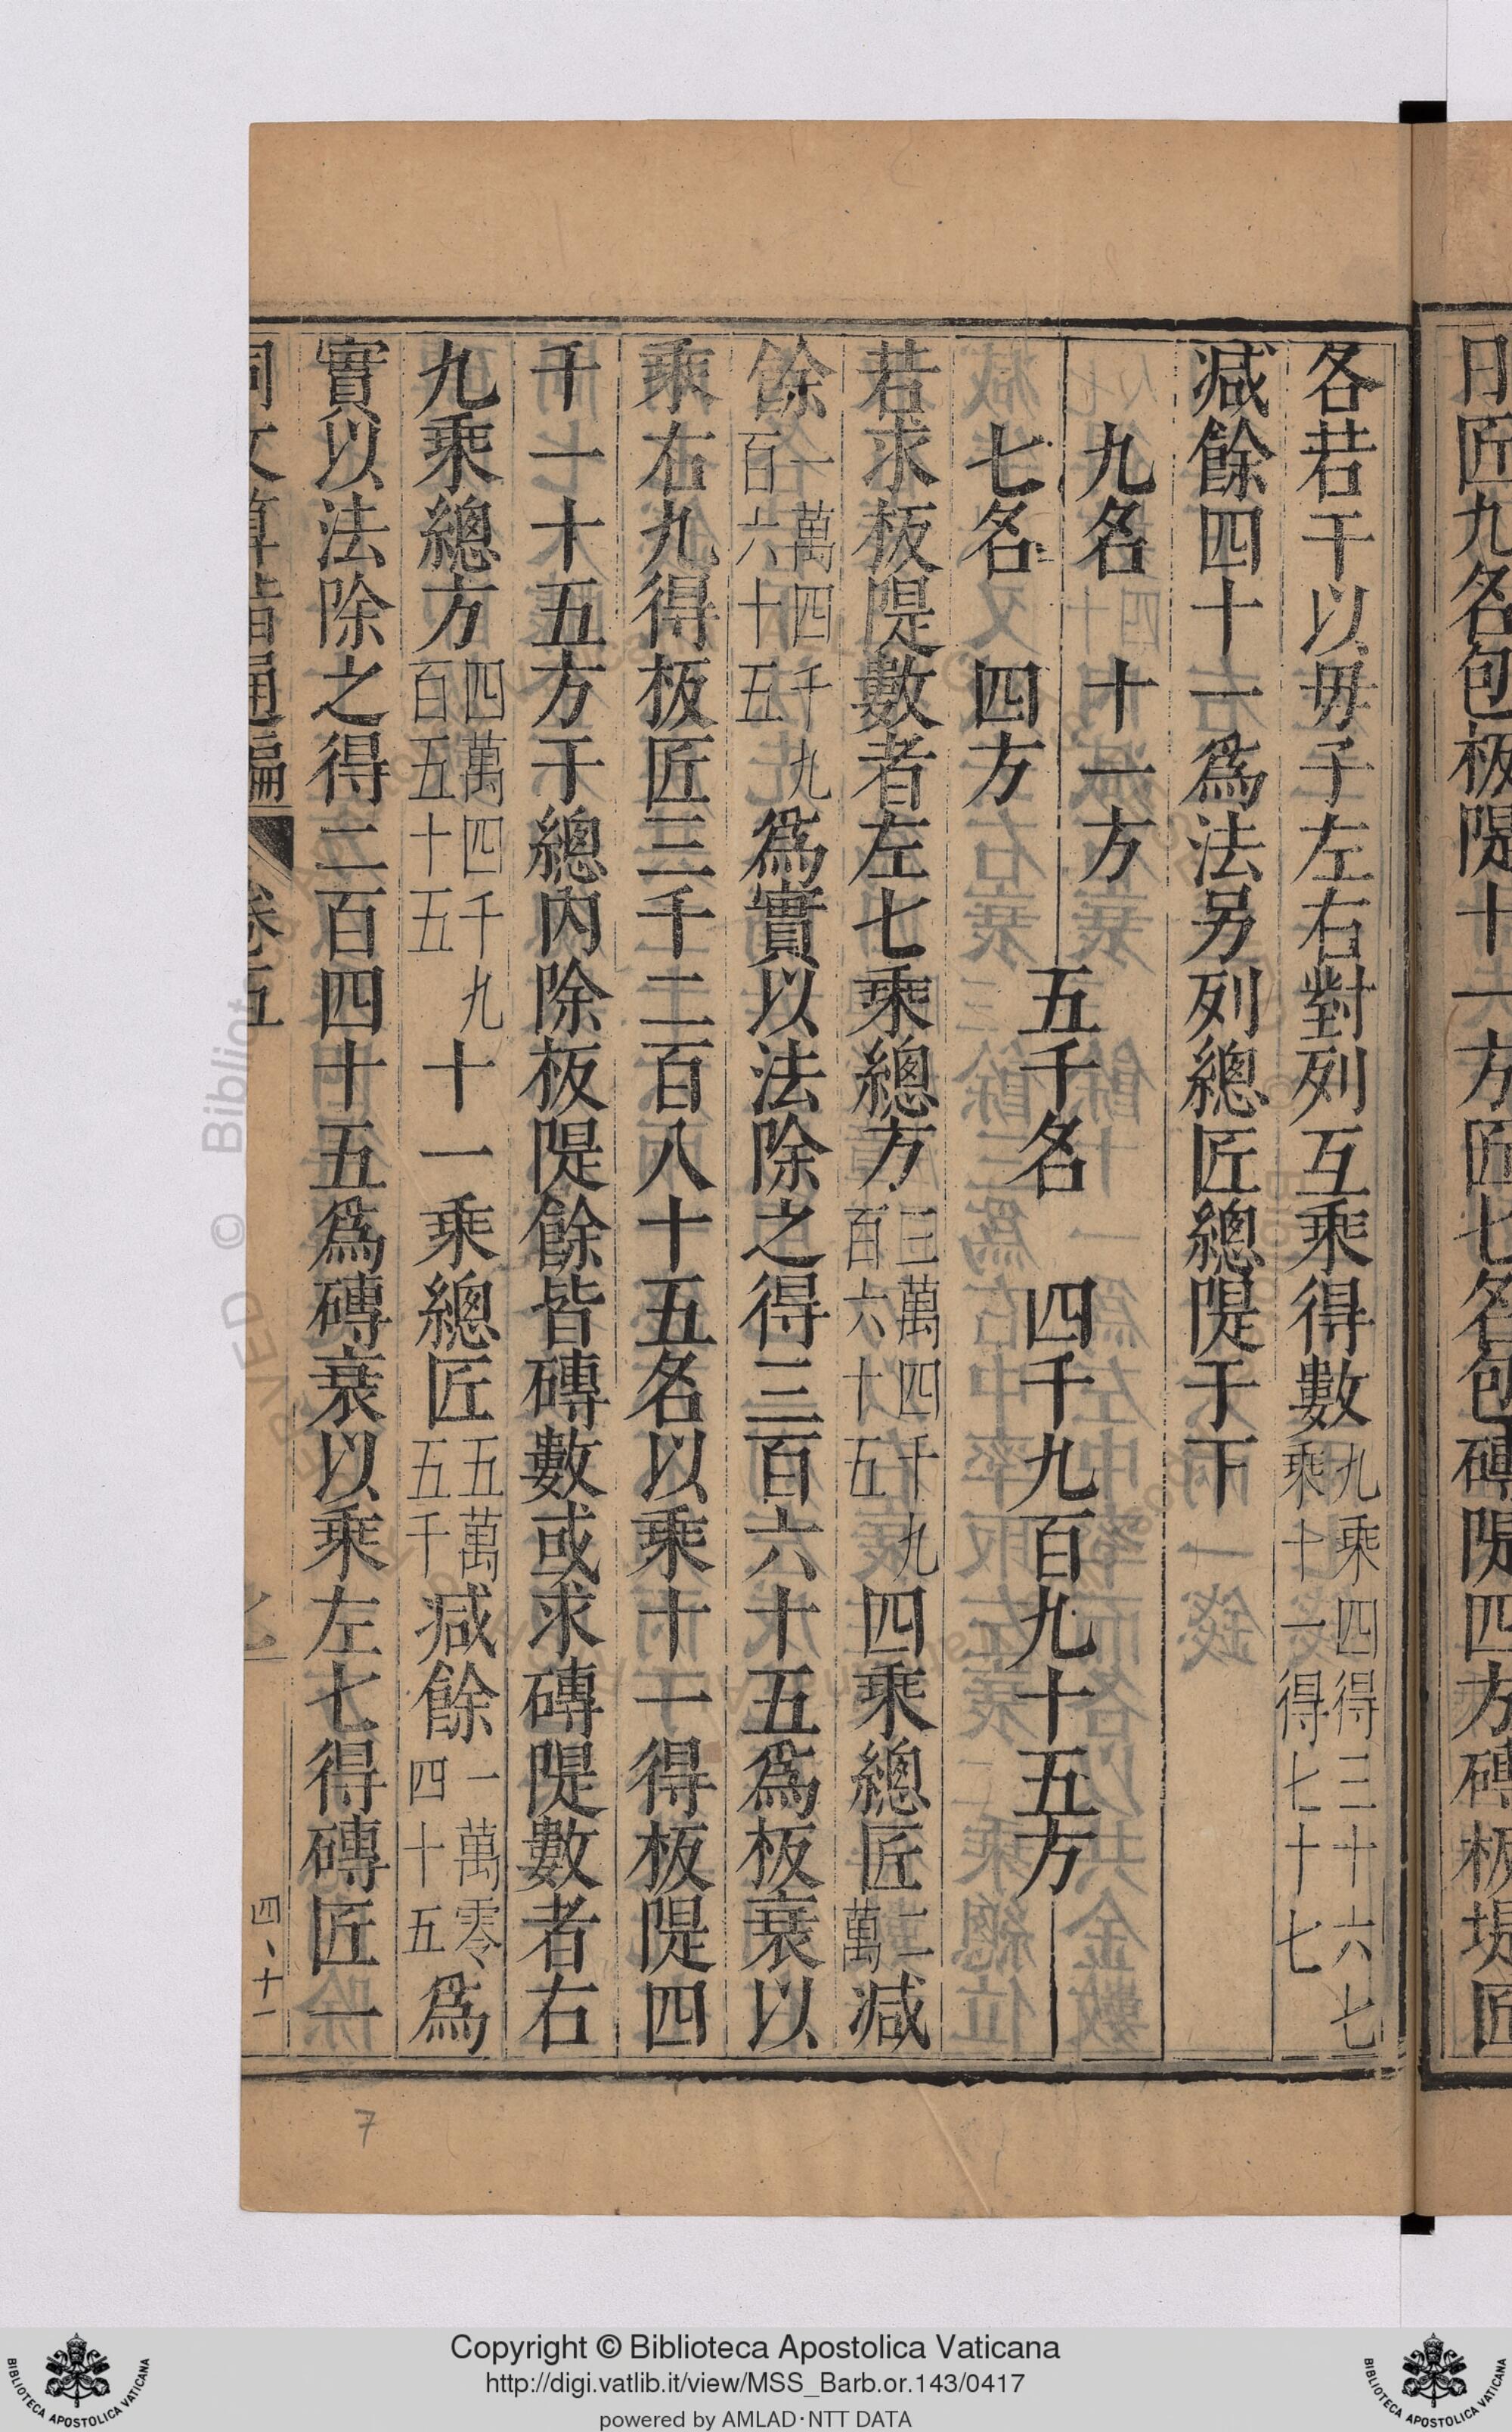 日匠九名包板隄十一方匠七名包磚隄四方磚板堤匠
各若干以毋子左右對列互乘得數九乘四得三十六七乘十一得七十七
減餘四十一爲法另列總匠總隄于下
九名 十一方
七名 四方
五千名 四千九百九十五方
若求板隄數者左七乘總方三萬四千九百六十五四乘總匠二萬減
餘一萬四千九百六十五爲實以法除之得三百六十五爲板衰以
乘右九得板匠三千二百八十五名以乘十一得板隄四
千一十五方于總內除板隄餘皆磚數或求磚隄數者右
九乘總方四萬四千九百五十五十一乘總匠五萬五千減餘一萬零四十五爲
實以法除之得二百四十五爲磚衰以乘左七得磚匠一
同文算指通編 卷五 四、十一
7
© Bibliot
Copyright © Biblioteca Apostolica Vaticana
http://digi.vatlib.it/view/MSS_Barb.or.143/0417
powered by AMLAD·NTT DATA
BIBLIOTECA APOSTOLICA VATICANA
BIBLIOTECA APOSTOLICA VATICANA